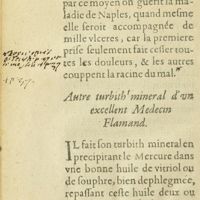 par ce moyen on guerit la ma-
ladie de Naples, quand mesme
elle seroit accompagnée de
mille vlceres, car la premiere
prise seulement fait cesser toutes
les douleurs, & les autres
couppent la racine du mal.
Autre turbith mineral d'vn
excellent Medecin
Flamand.
IL fait son turbith mineral en
precipitant le Mercure dans
vne bonne huile de vitriol ou
de souphre, bien dephlegmée,
repassant ceste huile deux ou